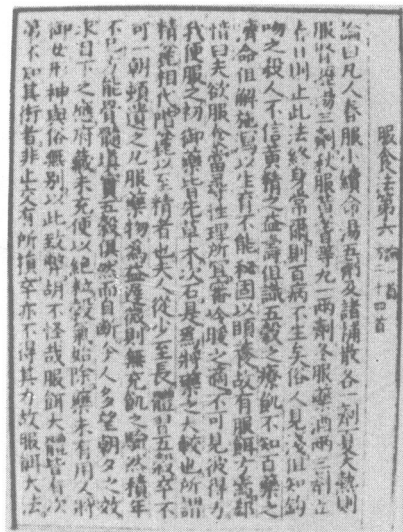 服食法第六 論一首 方二十四首
論曰凡人春服小續命湯五劑及諸補散各一劑夏大熱則
服腎瀝湯三劑秋服黃耆等丸一兩劑冬服藥酒兩三劑立
春日則止此法終身常爾則百病不生矣俗人見淺但知鉤
吻之殺人不信黃精之益壽但識五穀之療飢不知百藥之
濟命但解施瀉以生育不能秘固以頤養故有服餌方焉郄
愔曰夫欲服食當尋性理所宜審冷暖之適不可見彼得力
我便服之初御藥皆先草木次石是為將藥之大較也所謂
精麁相代階麁以至精者也夫人從少至長體習五穀卒不
可一朝頓遺之凡服藥物為益遲微則無充飢之驗然積年
不已方能骨髓填實五穀俱然而自斷今人多望朝夕之效
求目下之應腑藏未充便以絕粒穀氣始除藥未有用又將
御女形神與俗無別以此致弊胡不怪哉服餌大體皆有次
第不知其術者非止交有所損卒亦不得其力故服餌大法